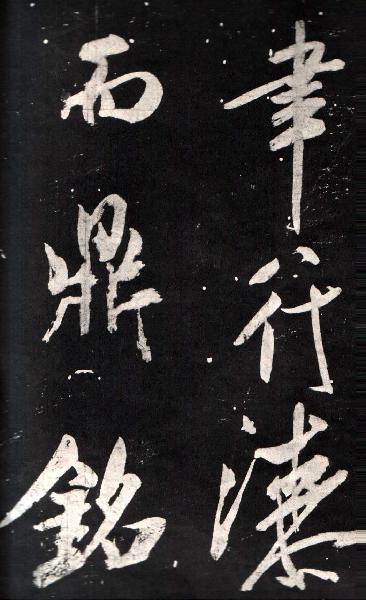 聿行漆
而鼎銘